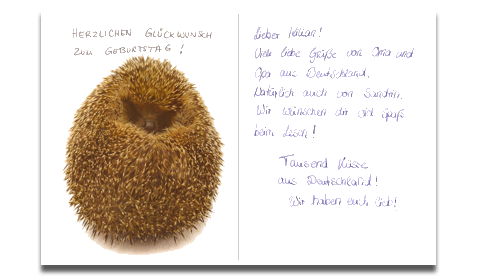 HERZLICHEN GLÜCKWUNSCH
ZUM GEBURTSTAG!
Lieber Kilian!
Viele liebe Grüße von Oma und
Opa aus Deutschland.
Natürlich auch von Sandrin.
Wir wünschen dir viel Spaß
beim Lesen!
Tausend Küsse
aus Deutschland!
Wir haben euch lieb!